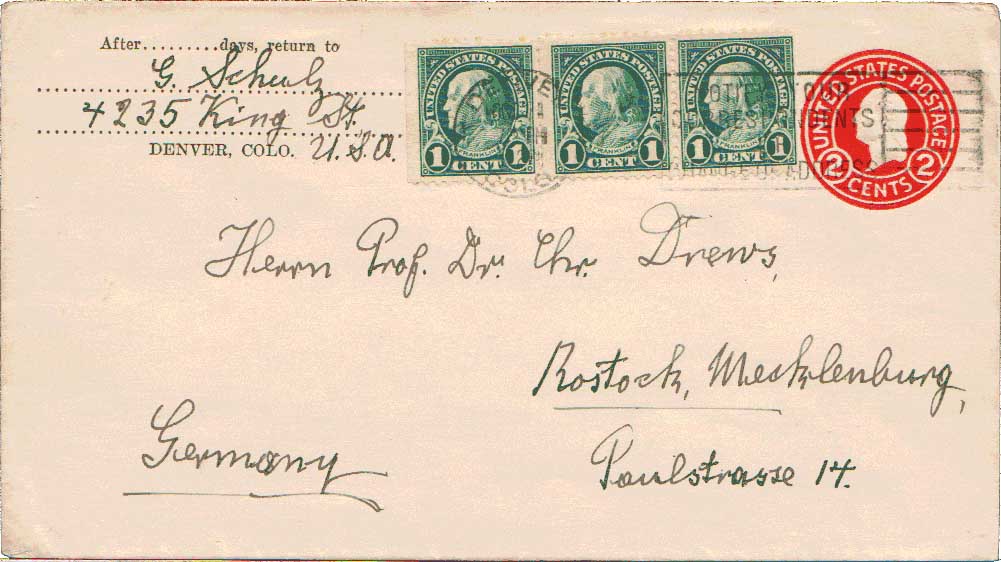 After.........days, return to
G. Schulz
4235 King St.
DENVER, COLO. U.S.A.
UNITED STATES POSTAGE
FRANKLIN
1 CENT 1
UNITED STATES POSTAGE
FRANKLIN
1 CENT 1
UNITED STATES POSTAGE
FRANKLIN
1 CENT 1
DENVER
COLO.
NOTIFY YOUR
CORRESPONDENTS
OF
CHANGE OF ADDRESS
UNITED STATES POSTAGE
2 CENTS 2
Herrn Prof. Dr. Chr. Drews,
Rostock, Mecklenburg,
Paulstrasse 14.
Germany